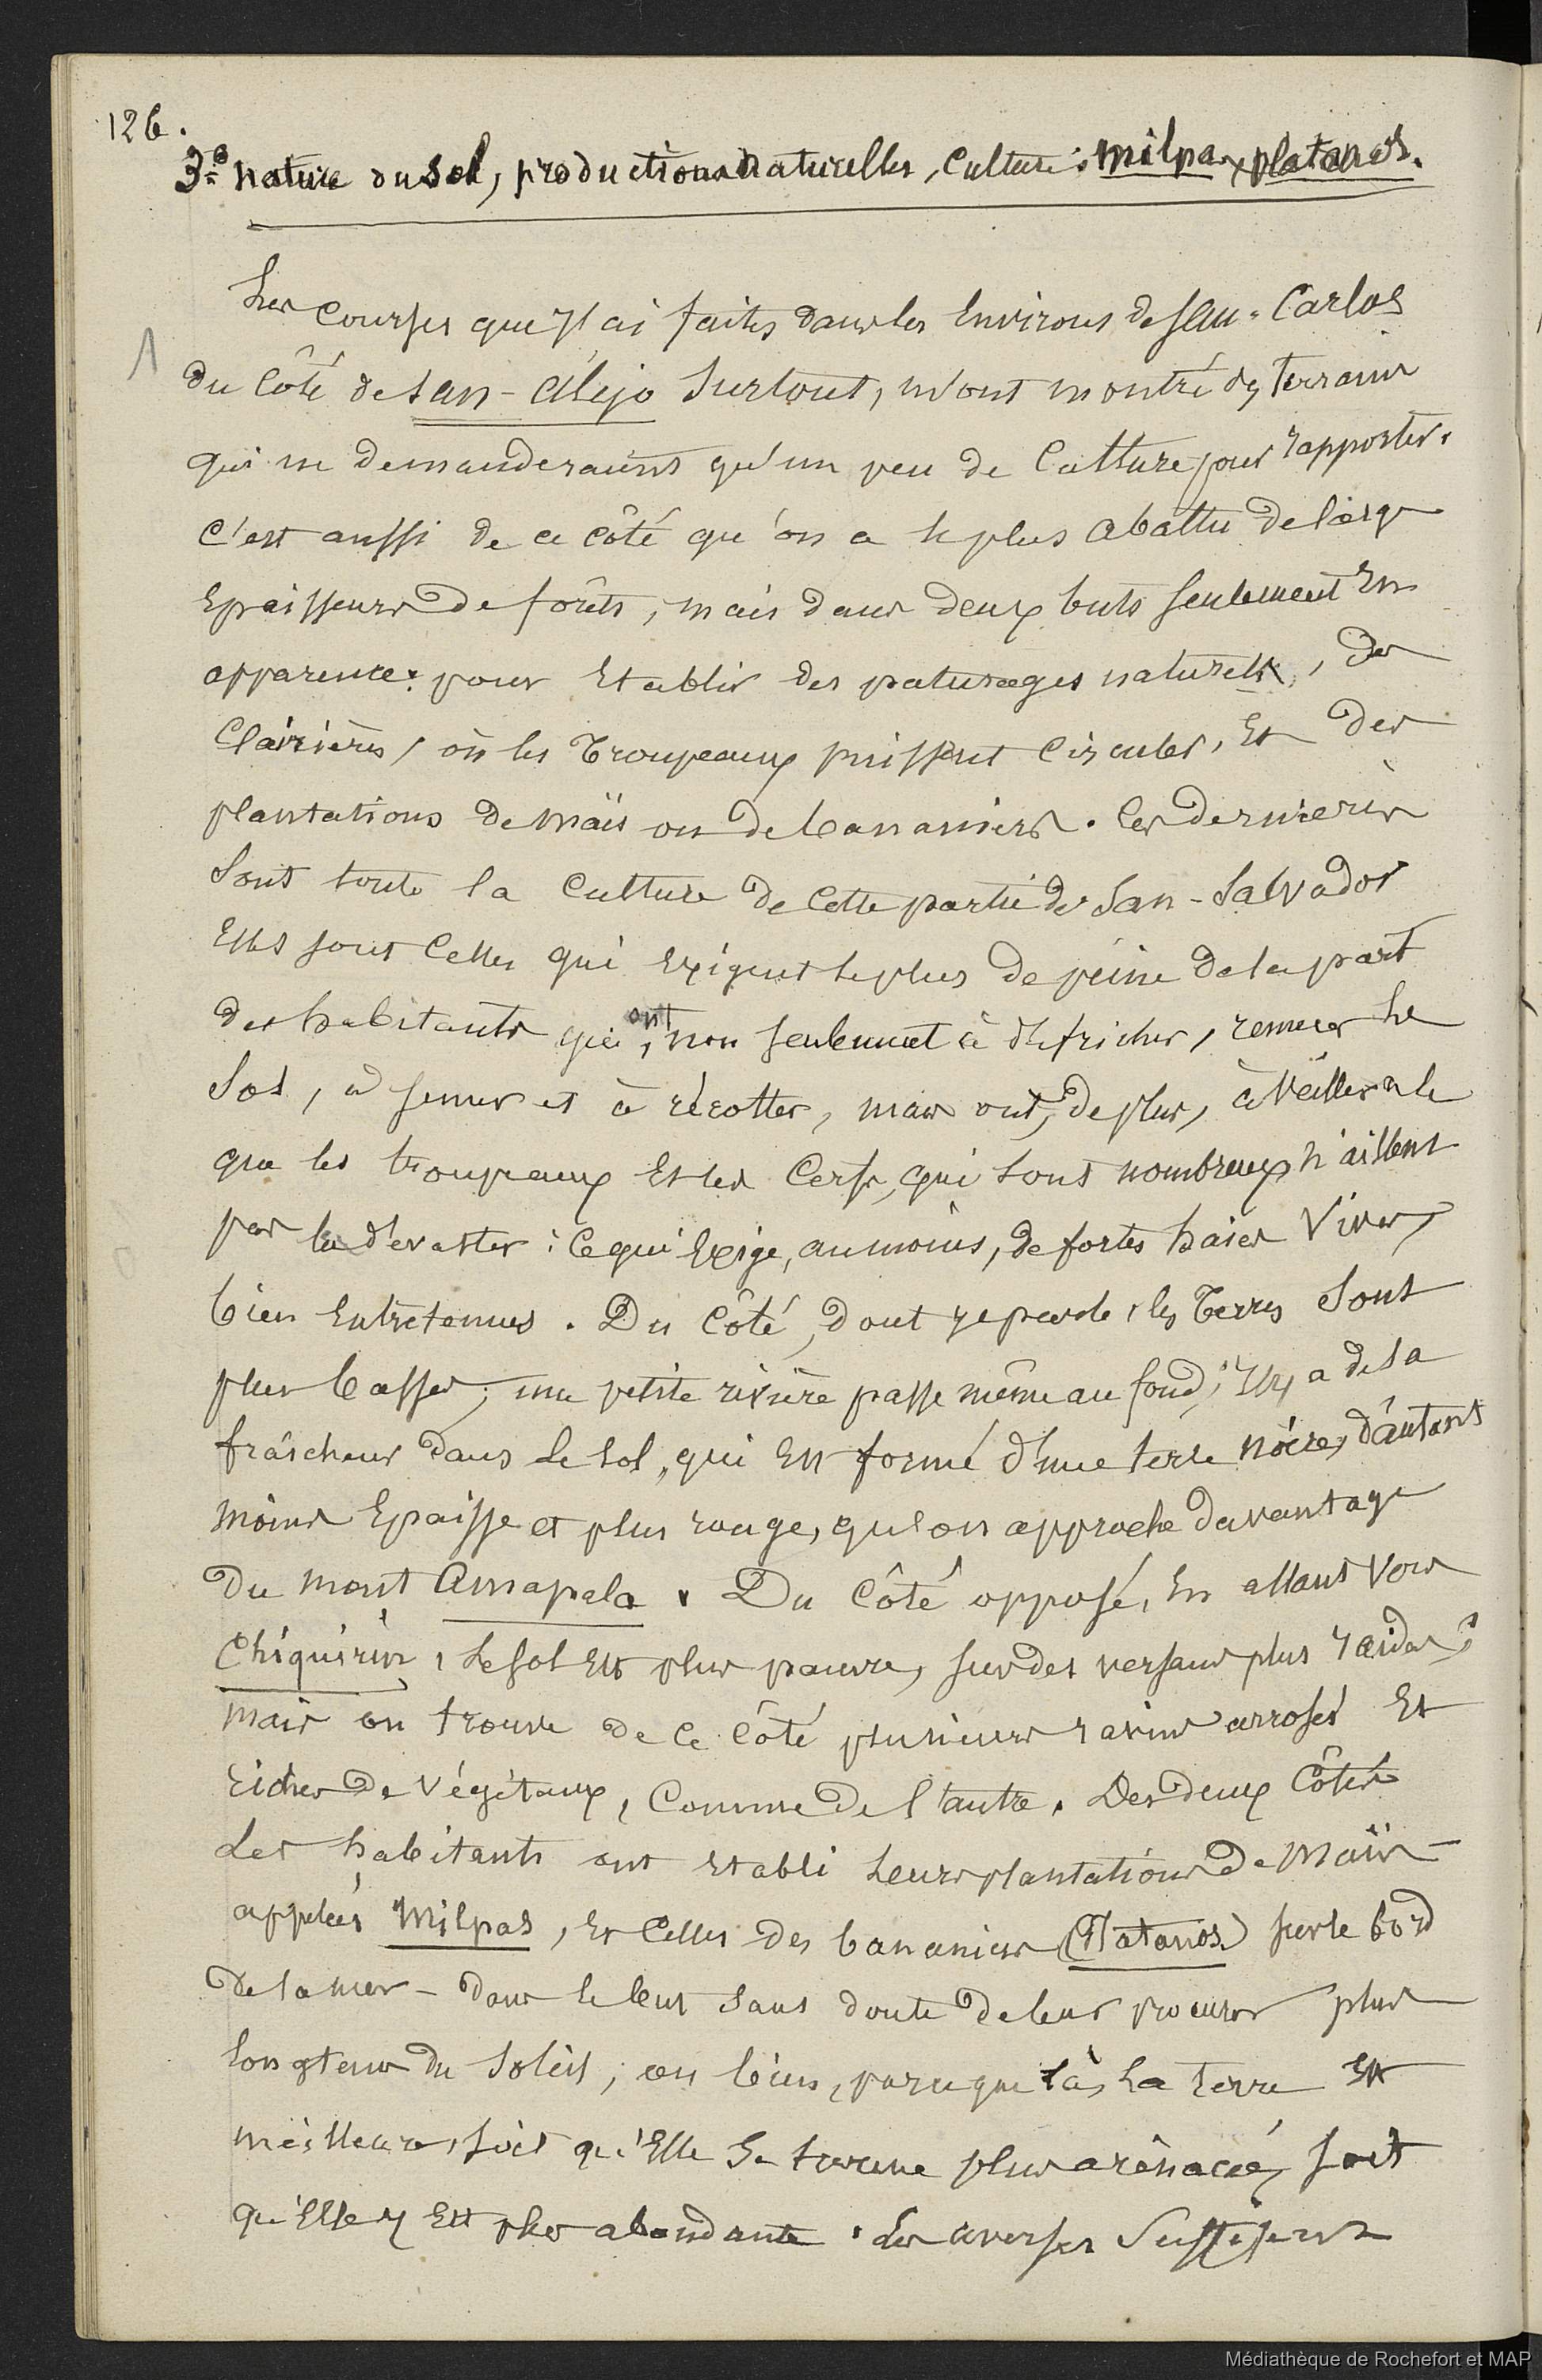 126.
3º nature du sol, productions naturelles, Culture: milpa, platanos.
Les Courses que j'ai faites dans les Environs de San-Carlos
1
du Côté de San-Aléjo Surtout, m'ont montré des Terrains
qui ne demanderaient qu'un peu de Culture pour rapporter.
C'est aussi de ce côté qu'on a le plus abattu de larges
Epaisseurs de forêts, mais dans deux buts seulement En
apparence: pour Etablir des paturages naturels, des
Clairières, où les Troupeaux puissent Circuler, Et des
plantations de maïs ou de bananiers. Ces dernières
Sont toute la Culture de Cette partie de San-Salvador
Elles sont Celles qui Exigent le plus de peine de la part
des habitants qui ont, non seulement à défricher, remuer le
Sol, à semer et à récolter, mais ont, de plus, à Veiller à ce
que les troupeaux Et les Cerfs, qui sont nombreux n'aillent
pas la dévaster: Ce qui Exige, au moins, de fortes haies Vives,
bien Entretenues. Du Côté, dont je parle, les Terres Sont
plus basses; une petite rivière passe même au fond; Il y a de la
fraîcheur dans le Sol, qui Est formé d'une terre noire, d'autant
moins Epaisse et plus rouge, qu'on approche davantage
du mont Amapala. Du Côté opposé, En allant Vers
Chiquirin, le sol Est plus pauvre, sur des versants plus raides;
mais on trouve de Ce Côté plusieurs ravins arrosés Et
riches de Végétaux, Comme de l'autre. Des deux Côtés
Les habitants ont Etabli leurs plantations de Maïs
appelées Milpas, Et Celles des bananiers (Platanos) sur le bord
de la mer - dans le but sans doute de leur procurer plus
longtems du Soleil; ou bien, parceque là, La Terre Est
meilleure, soit qu'Elle Se trouve plus arénacée, soit
qu'Elle y Est plus abondante. Les averses Suffisent